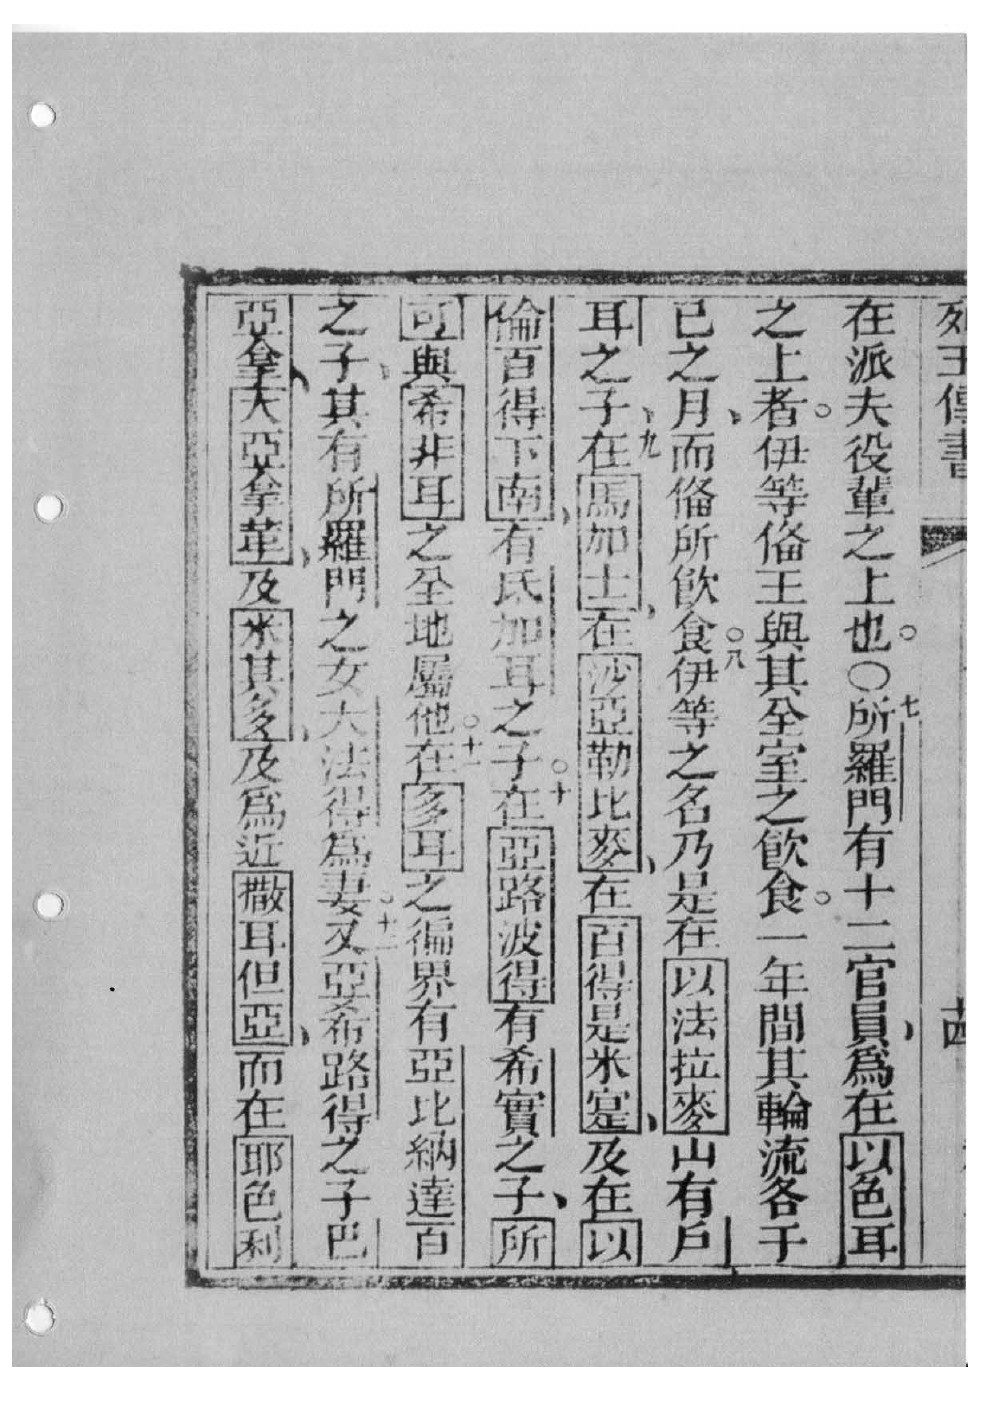 列王傳書
在派夫役輩之上也。〇七所羅門有十二官員、爲在以色耳
之上者。伊等俻王與其全室之飲食。一年間其輪流各于
已之月、而俻所飲食。八伊等之名乃是在以法拉麥山有戶
耳之子、九在馬加士、在沙亞勒比麥、在百得是米寔、及在以
倫百得下南、有氏加耳之子。十在亞路波得有希實之子、所
可與希非耳之全地屬他。十一在多耳之徧界有亞比納達百
之子、其有所羅門之女大法得爲妻。十二又亞希路得之子巴
亞拿、大亞拿革、及米其多、及爲近撒耳但亞、而在耶色利